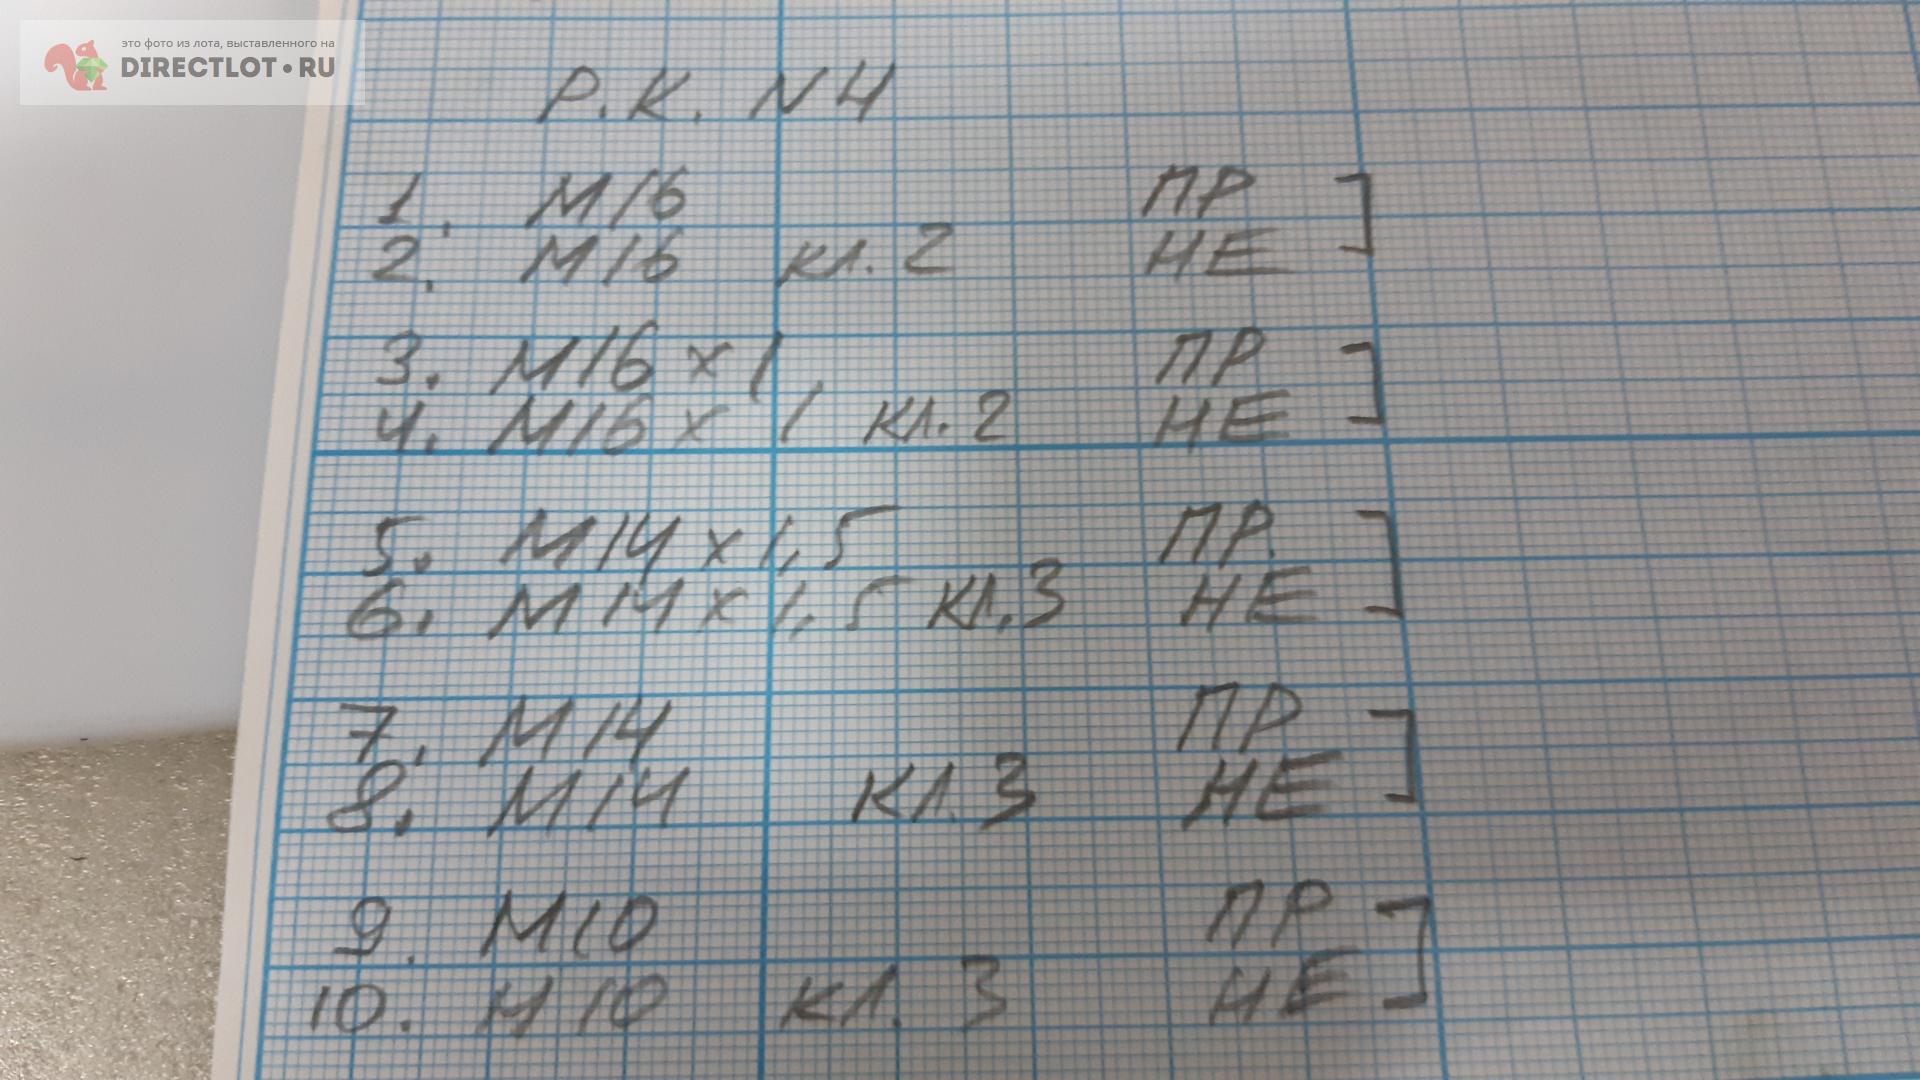 это фото из лота, выставленного на
DIRECTLOT•RU
Р.К. N4
1. М16 ПР
2. М16 кл. 2 НЕ
3. М16 х 1 ПР
4. М16 х 1 кл. 2 НЕ
5. М14 х 1,5 ПР.
6. М14 х 1,5 кл. 3 НЕ
7. М14 ПР
8. М14 кл. 3 НЕ
9. М10 ПР
10. М10 кл. 3 НЕ